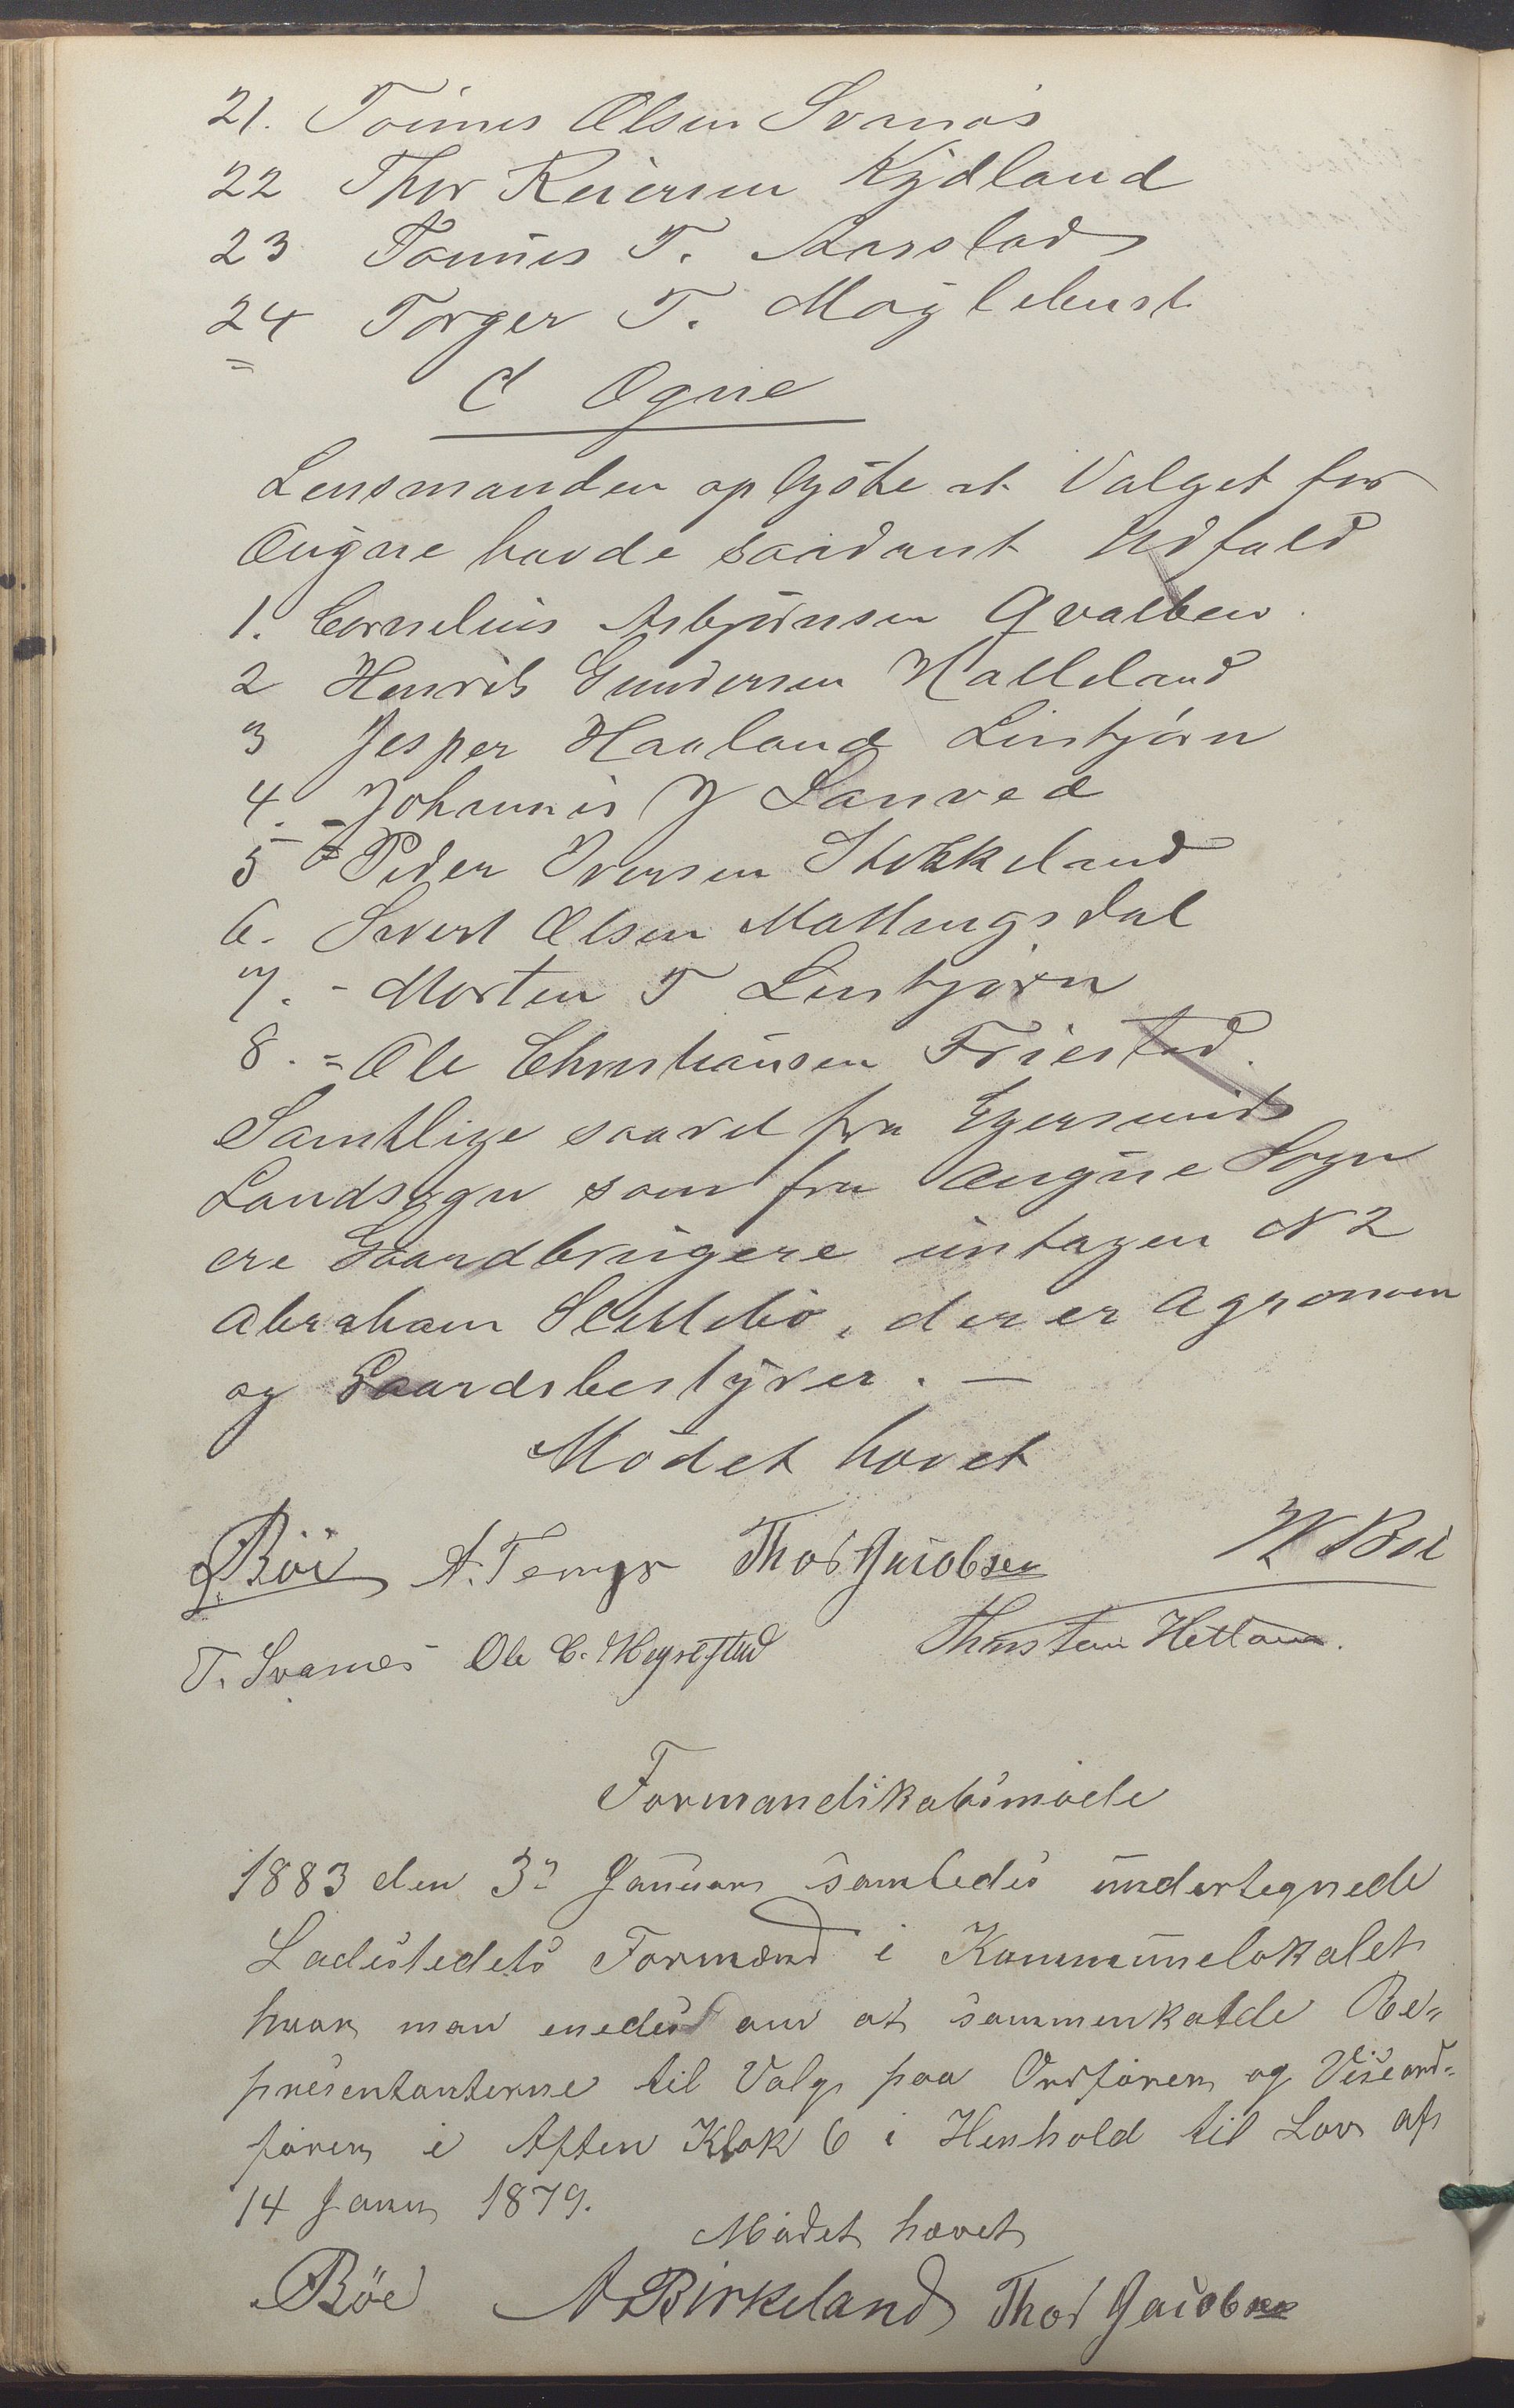 21. Tønnes Olsen Svanæs
22 Thor Reiersen Kydland
23 Tønnes T. Aarstad
24 Torger T. Møglebust
C Ogne
Lensmanden oplyste at Valget for
Ougne havde saadant Udfald
1. Cornelius Asbjørnsen Qvalben
2 Henrik Gundersen Halleland
3 Jesper Haaland Lintjørn
4. Johannes J Lanved
5 Peder Iversen Stokkeland
6. Sivert Olsen Matlungsdal
7. - Morten T Lintjørn
8. = Ole Christiansen Friestad.
Samtlige saavel fra Egersunds
Landsogn som fra Ougne Sogn
ere Gaardbrugere untagen N 2
Abraham Slettebø, der er Agronom
og Gaardsbestyrer. —
Mödet hævet
Böe A. Tengs Thor Jacobsen W Böe
T. Svanes Ole C. Møgrestad Thorsten Hetland.
Formandskabsmöde
1883 den 3die Januar samledes undertegnede
Ladestedets Formænd i Kommunelokalet
hvor man enedes om at sammenkalde Re-
præsentanterne til Valg paa Ordförer og Viseord-
förer i Aften Klok 6 i Henhold til Lov af
14 Janu 1879.
Mödet hævet
Böe A Birkeland Thor Jacobsen